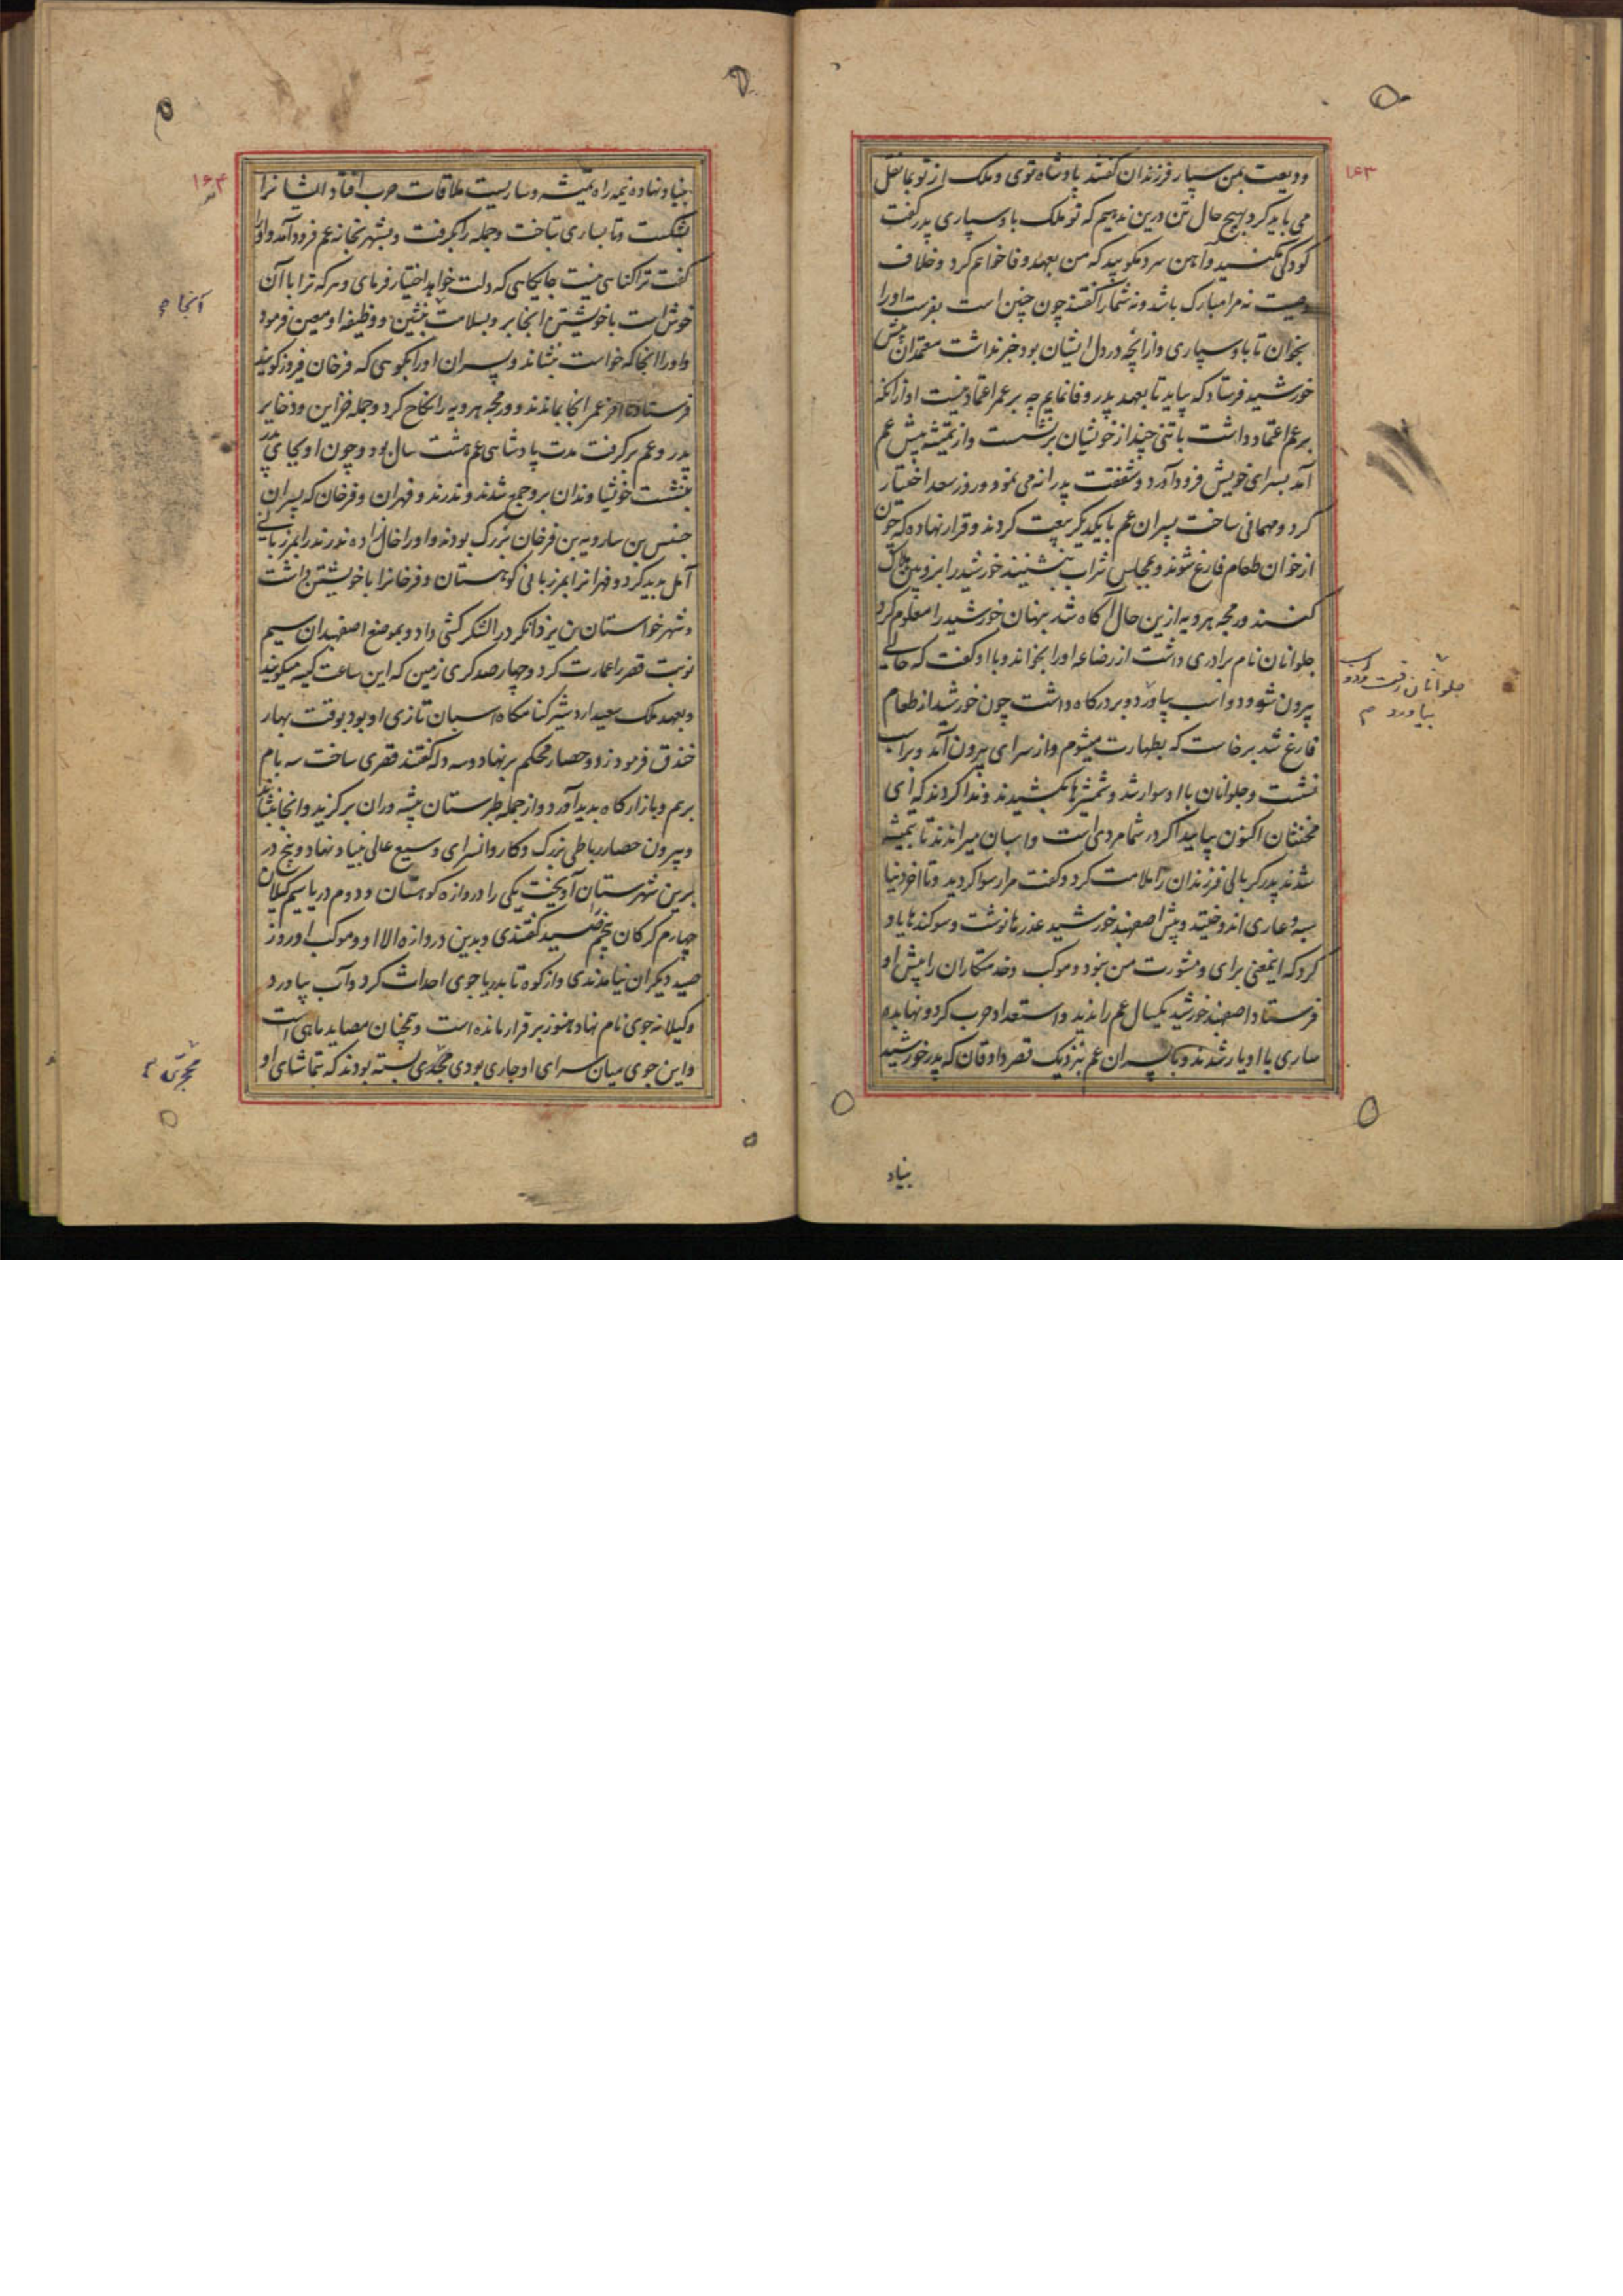 ۱۶۳
ودیعت بمن سپار فرزندان گفتند پادشاه توی و ملک از تو بما نقل
می باید کرد بهیچ حال تن درین ندهیم که تو ملک باو سپاری پدر گفت
کودکی مکنید و آهن سرد مکوبید که من بعهد وفا خواهم کرد و خلاف
وصیت نه مرا مبارک باشد و نه شما را گفتند چون چنین است بفرست او را
بخوان تا باو سپاری و از آنچه در دل ایشان بود خبر نداشت معتمدان پیش
خورشید فرستاد که بیاید تا بعهد پدر وفا نمایم چه بر عمر اعتماد نیست او از آنکه
بر عم اعتماد داشت با تنی چند از خویشان برنشست و از تمیشه پیش عم
آمد بسرای خویش فرود آورد و شفقت پدرانه می نمود و روز سعد اختیار
کرد و مهمانی ساخت پسران عم با یکدیگر بیعت کردند و قرار نهاده که چون
از خوان طعام فارغ شوند و بمجلس شراب بنشینند خورشید را بزوبین هلاک
کنند ورمجه هرویه ازین حال آگاه شد بپنهان خورشید را معلوم کرد
جلوانان نام برادری داشت از رضاعه او را بخواند و با او گفت که حالی
بیرون شو و دو اسب بیاور و بر درگاه داشت چون خورشید از طعام
جلوانان رفت و دو اسب
بیاورد م
فارغ شد برخاست که بطهارت میشوم و از سرای بیرون آمد و بر اسب
نشست و جلوانان با او سوار شد و شمشیرها بکشیدند و ندا کردند که ای
مخنثان اکنون بیایید اگر در شما مردی است و اسبان میراندند تا بتمیشه
شدند پدر کربالی فرزندان را ملامت کرد و گفت مرا رسوا کردید و تا آخر دنیا
و عاری اندوختید و پیش اصفهبد خورشید عذرها نوشت و سوگندها یاد
کرد که این معنی برای و مشورت من نبود و موکب و خدمتکاران را پیش او
فرستاد اصفهبد خورشید یکسال عم را ندید و استعداد حرب کرد و نهابده
ساری با او یار شدند و با پسران عم بنزدیک قصر دادقان که پدر خورشید
بنیاد
۱۶۴
بنیاد نهاده نیمه راه تمیشه و ساریست ملاقات حرب افتاد ایشانرا
بشکست و تا بساری بتاخت و جمله را بگرفت و بشهر بخانه عم فرود آمد و او را
گفت ترا گناهی نیست جایگاهی که دلت خواهد اختیار فرمای و هر که ترا با آن
خوش است با خویشتن آنجا بر و بسلامت بنشین و وظیفه او معین فرمود
آنجا
و او را آنجا که خواست بنشاند و پسران او را بکوهی که فرخان فیروز گویند
فرستاد تا آخر عمر آنجا بماندند و ورمجه هرویه را نکاح کرد و جمله خزاین و ذخایر
پدر و عم برگرفت مدت پادشاهی عم هشت سال بود و چون او بجای پدر
بنشست خویشاوندان برو جمع شدند و ندرند و فهران و فرخان که پسران
جنس بن سارویه بن فرخان بزرگ بودند و او را خال زاده ندرند را بمرزبانی
آمل پدید کرد و فهرانرا بمرزبانی کوهستان و فرخانرا با خویشتن داشت
و شهر خواستان بن یزدانکرد را لشکر کشی داد و بموضع اصفهبدان سیم
نوبت قصر را عمارت کرد و چهار صد گری زمین که این ساعت کیسه میگویند
و بعهد ملک سعید اردشیر کنامگاه اسبان تازی او بود بوقت بهار
خندق فرمود زد و حصار محکم برنهاد و سه دله گفتند قصری ساخت سه بام
برهم و بازارگاه پدید آورد و از جمله طبرستان پیشه وران برگزید و آنجا بنشاند
و بیرون حصار رباطی بزرگ و کاروانسرای وسیع عالی بنیاد نهاد و پنج در
برین شهرستان آویخت یکی را دروازه کوهستان و دوم دریا سیم گیلان
چهارم گرگان پنجم صید گفتندی و بدین دروازه الا او و موکب او روز
صید دیگران نیامدندی و از کوه تا بدریا جوی احداث کرد و آب بیاورد
و گیلانه جوی نام نهاد هنوز برقرار مانده است و همچنان مصاید ماهی است
و این جوی میان سرای او جاری بودی محجری بسته بودند که بتماشای او
محجری